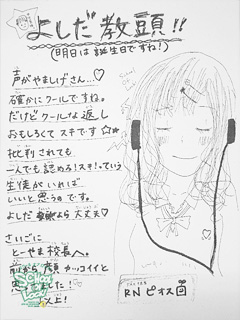 よしだ教頭!!
(明日は誕生日ですね!)
声がやましげさん…♡
確かにクールですね。
だけどクールな返し
おもしろくてスキです☆
批判されても
一人でも認めろ!スキ!っていう
生徒がいれば
いいと思うのです。
よしだ教頭なら大丈夫♡
さいごに
とーやま校長へ。
前から顔カッコイイと
思ってました!
以上!
RN ピオス